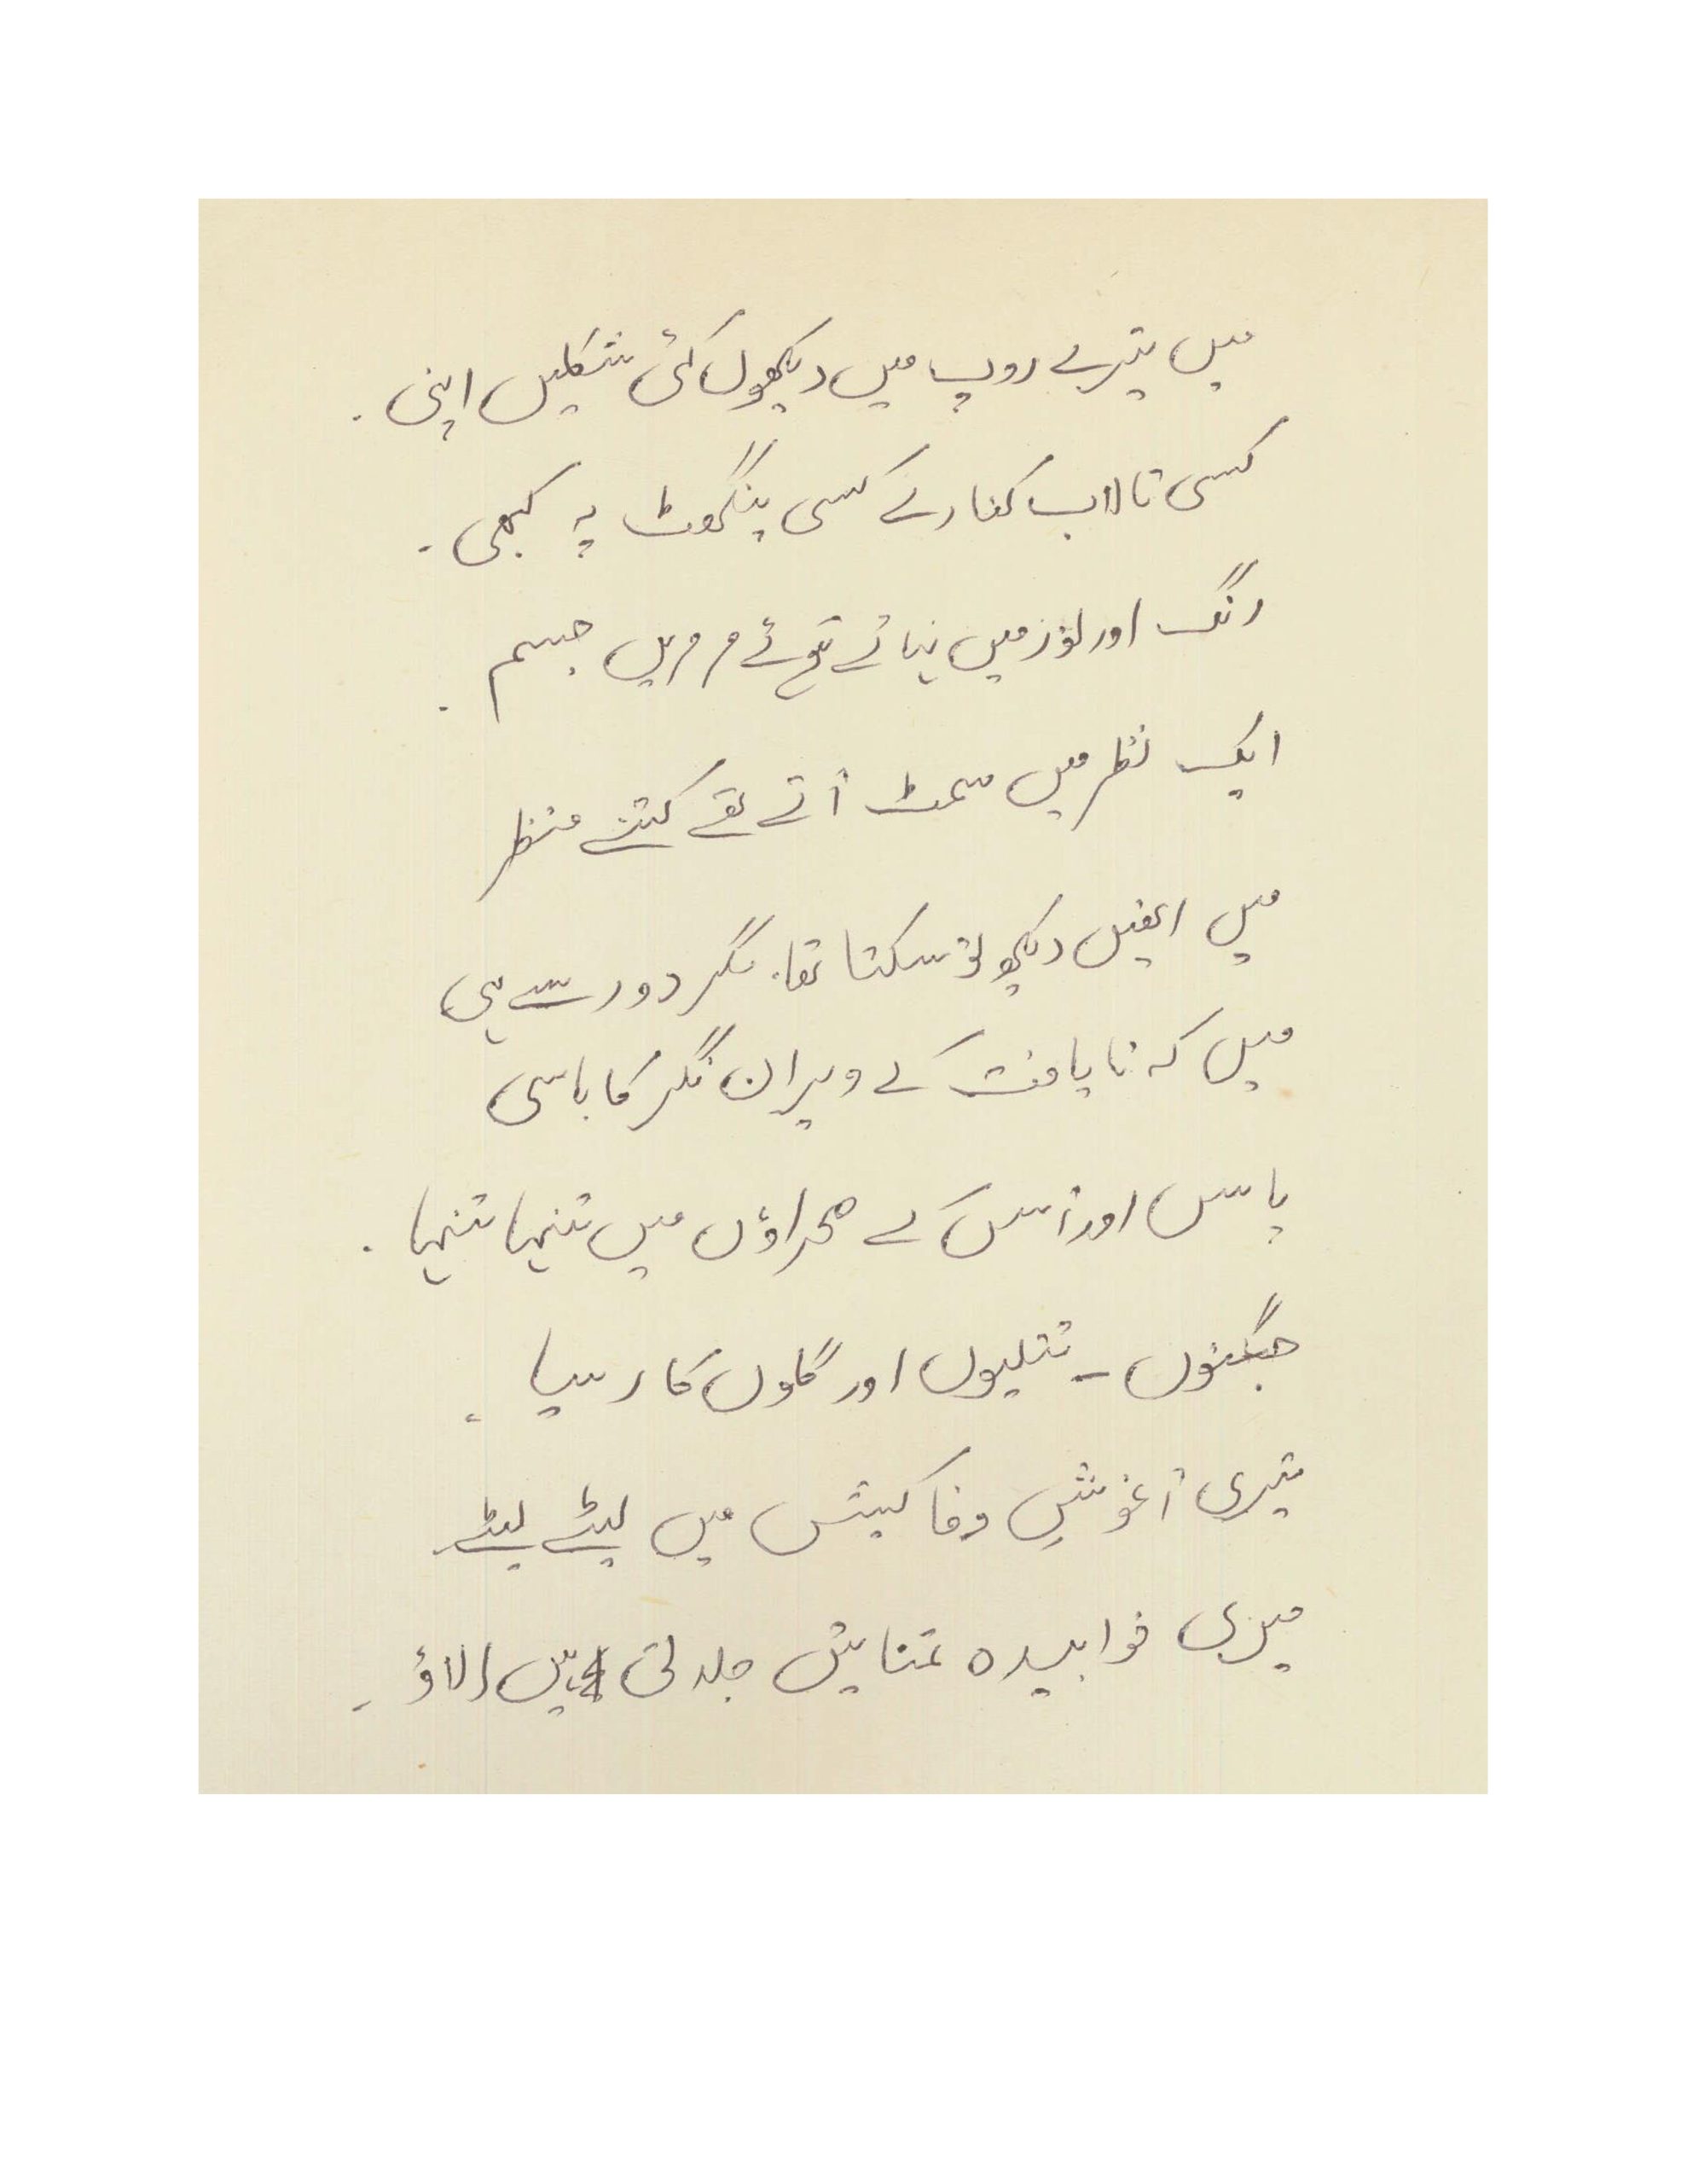 میں تیرے روپ میں دیکھوں کئی شکلیں اپنی ۔
کسی تالاب کنارے کسی پنگھٹ پہ کبھی ۔
رنگ اور نور میں نہائے ہوئے مرمریں جسم ۔
ایک نظر میں سمٹ آتے تھے کتنے منظر
میں انھیں دیکھ تو سکتا تھا، مگر دور سے ہی
میں کہ نایافت کے ویران نگر کا باسی
یاس اور آس کے صحراؤں میں تنہا تنہا ۔
جگنوں ۔ تتلیوں اور گاوں کا رسیا ۔
تیری آغوش وفا کیش میں لیٹے لیٹے
میری خوابیدہ تمنایئں جلاتی ہیں الاؤ ۔